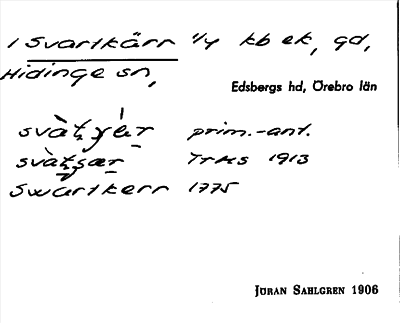 1 Svartkärr 1/4 kb ek, gd,
Hidinge sn,
Edsbergs hd, Örebro län
prim.-ant.
TrKs 1913
Swartkerr 1775
JÖRAN SAHLGREN 1906